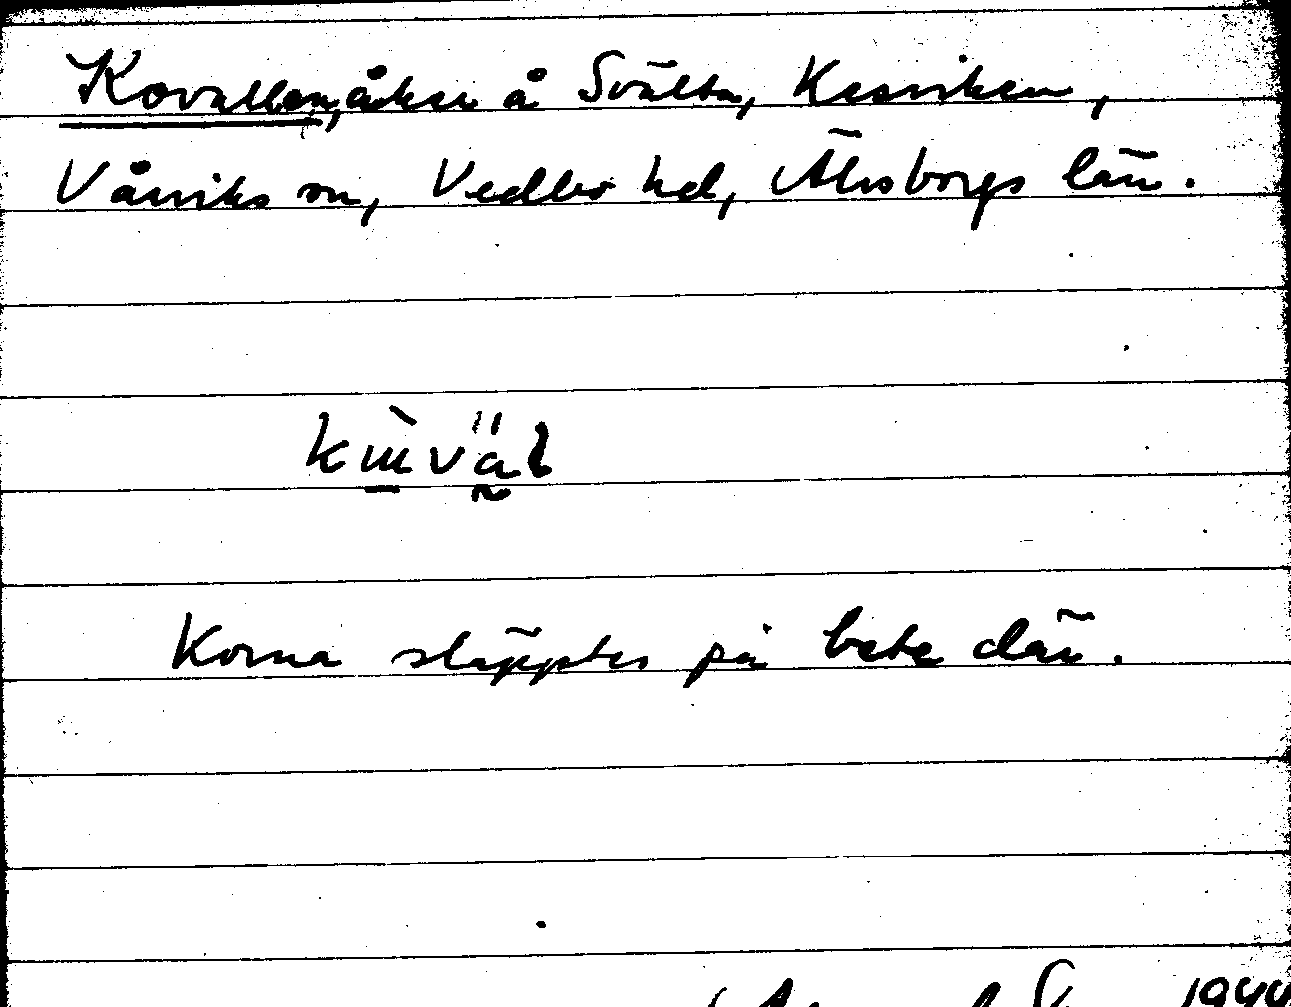 Kovallen, åker å Svälta, Kesviken,
Vårviks sn, Vedbo hd, Älvsborgs län.
Korna släpptes på bete där.
1944